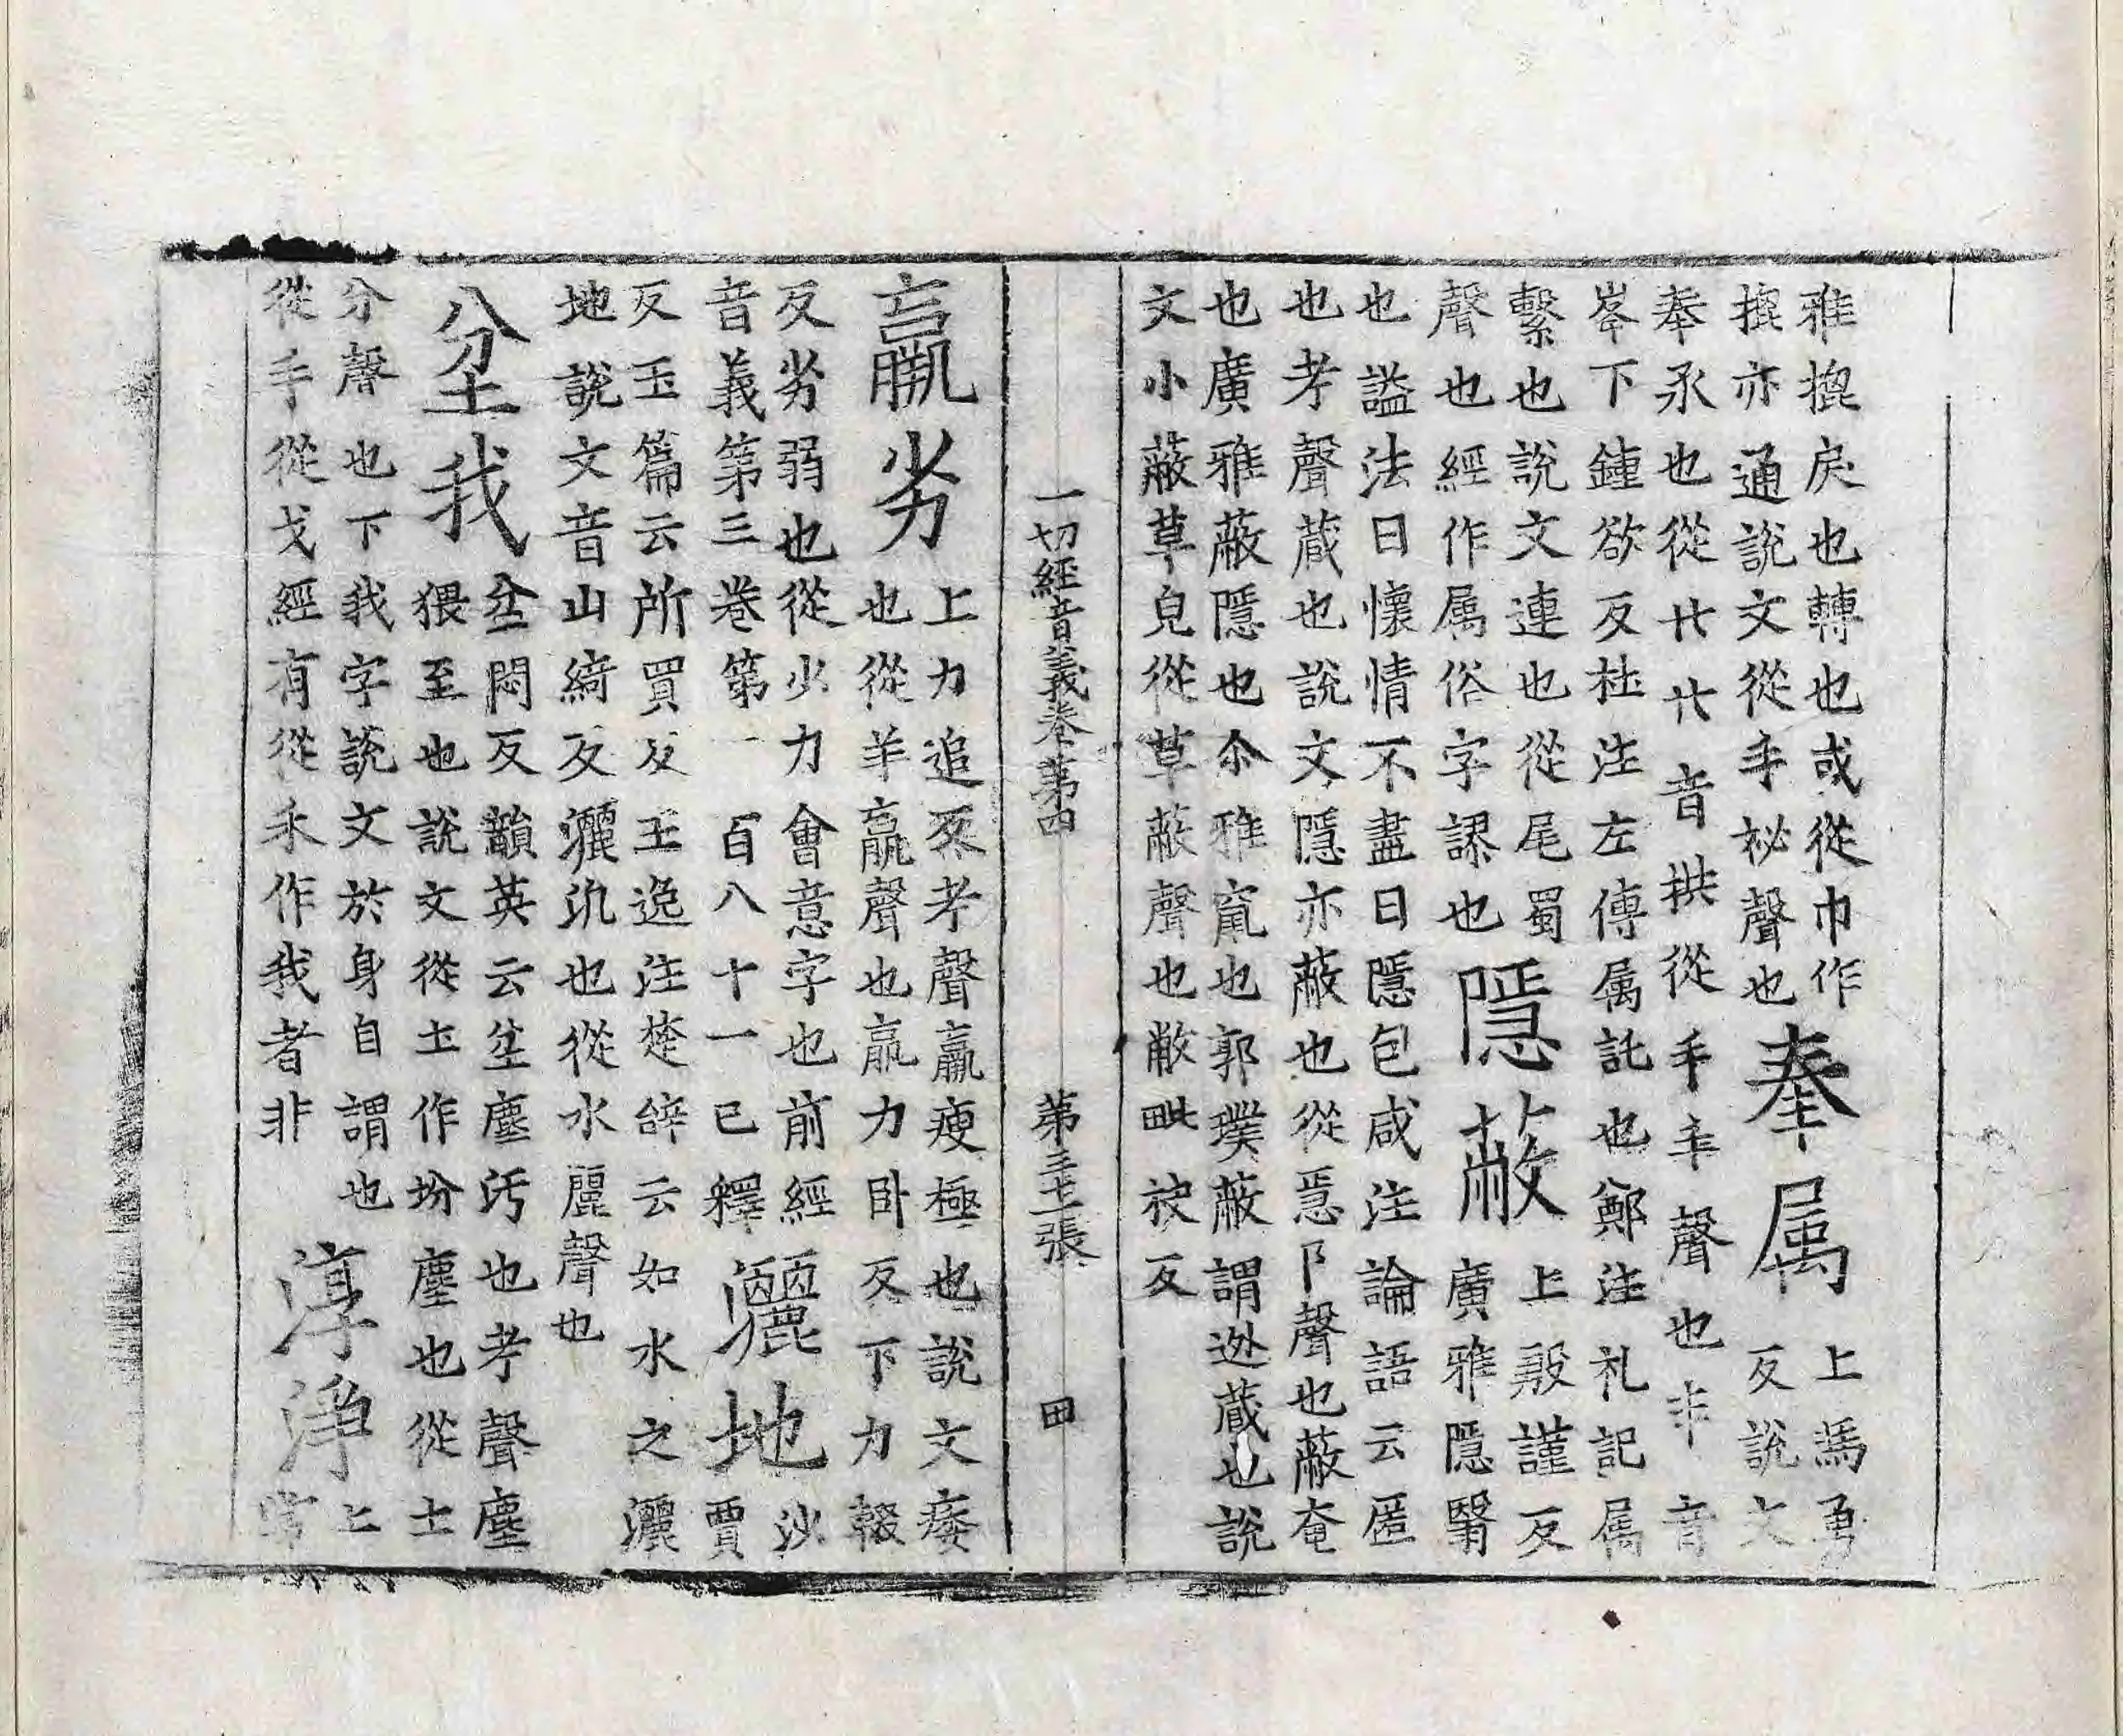 雅捩戾也轉也或從巾作
捩亦通說文從手祕聲也
奉属
上馮勇
反說文
奉承也從廾廾音拱從手丰聲也丰音
峯下鍾欲反杜注左傳属託也鄭注礼記属
繫也說文連也從尾蜀
聲也經作属俗字謬也
隱蔽
上殷謹反
廣雅隱翳
也謚法曰懷情不盡曰隱包咸注論語云匿
也考聲蔵也說文隱亦蔽也從㥯阝聲也蔽奄
也廣雅蔽隱也尒雅竄也郭璞蔽謂逃蔵也說
文小蔽草皃從草蔽聲也敝毗袂反
一切經音義卷第四 第三十七張 田
羸劣
上力追反考聲羸瘦極也說文痿
也從羊𣎆聲也𣎆力卧反下力輟
反劣弱也從少力會意字也前經
音義第三卷第一百八十一已釋
灑地
沙
賈
反玉篇云所買反王逸注楚辞云如水之灑
地說文音山綺反灑汛也從水麗聲也
坌我
坌悶反韻英云坌塵污也考聲塵
猥至也說文從土作坋塵也從土
分聲也下我字說文於身自謂也
從手從戈經有從禾作我者非
淳淨
上
常